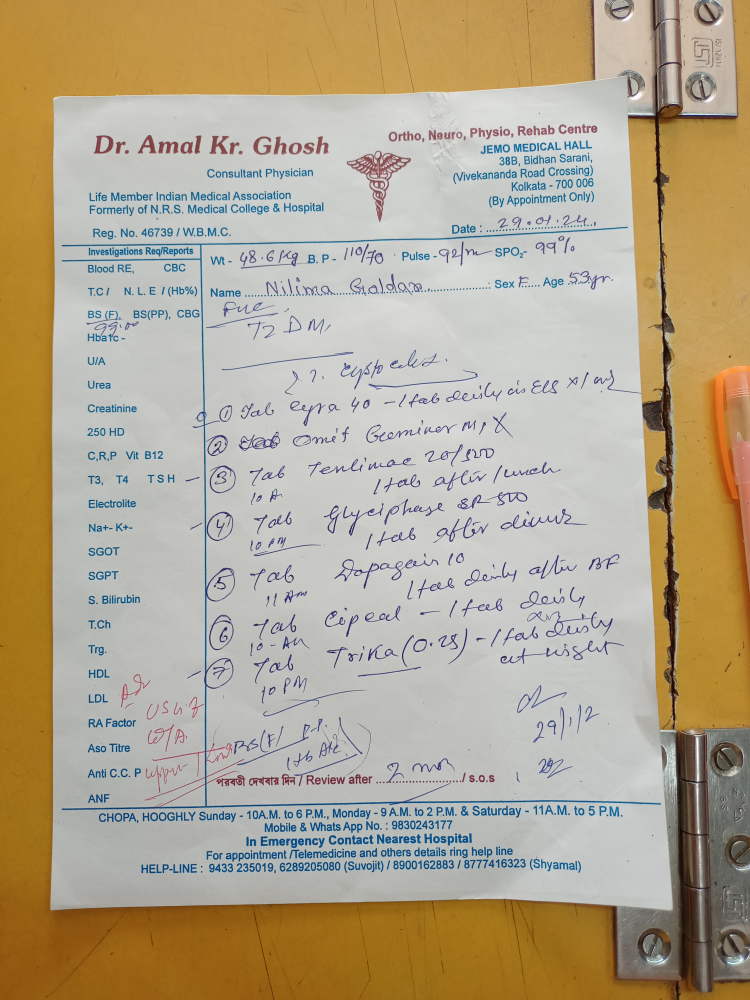 Dr. Amal Kr. Ghosh
Consultant Physician
Life Member Indian Medical Association
Formerly of N.R.S. Medical College & Hospital
Reg. No. 46739 / W.B.M.C.
Ortho, Neuro, Physio, Rehab Centre
JEMO MEDICAL HALL
38B, Bidhan Sarani,
(Vivekananda Road Crossing)
Kolkata - 700 006
(By Appointment Only)
Date : 29.01.24
Investigations Req/Reports
Blood RE, CBC
T.C / N. L. E / (Hb%)
BS (F), BS(PP), CBG
99.00
Hba1c -
U/A
Urea
Creatinine
250 HD
C,R,P Vit B12
T3, T4 TSH
Electrolite
Na+- K+-
SGOT
SGPT
S. Bilirubin
T.Ch
Trg.
HDL
LDL
RA Factor
Aso Titre
Anti C.C. P
ANF
Adv
USG of
W/A
upper
Wt - 48.6 Kg B. P - 110/70 Pulse - 92/m SPO2- 99%
Name Nilima Goldar : Sex F Age 53yr.
T2 DM,
① Tab Cyra 40 - 1 tab daily
② Omit Geminor M, X
③ Tab Tenlimac 20/500
10 A 1 tab after lunch
④ Tab Glyciphase SR 500
10 PM 1 tab after dinner
⑤ Tab Dapagain 10
11 Am 1 tab daily after BF
⑥ Tab Cipcal - 1 tab daily
10 - AM
⑦ Tab Trika (0.25) - 1 tab daily
10 PM at night
BS(F) P.P.
Hb A1c
29/1/2
পরবর্তী দেখবার দিন / Review after 2 mon / s.o.s
CHOPA, HOOGHLY Sunday - 10A.M. to 6 P.M., Monday - 9 A.M. to 2 P.M. & Saturday - 11A.M. to 5 P.M.
Mobile & Whats App No. : 9830243177
In Emergency Contact Nearest Hospital
For appointment /Telemedicine and others details ring help line
HELP-LINE : 9433 235019, 6289205080 (Suvojit) / 8900162883 / 8777416323 (Shyamal)